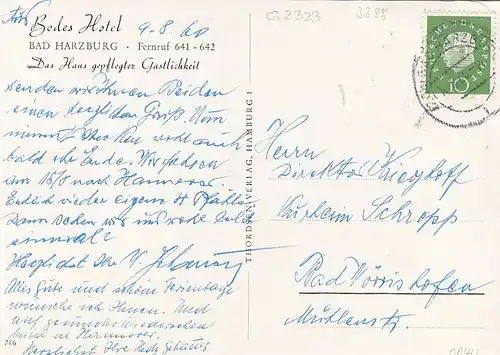 Bodes Hotel 9.8.60
BAD HARZBURG · Fernruf 641-642
Das Haus gepflegter Gastlichkeit
senden wir Ihnen Beiden
einen herzlichen Gruß. Nun
nimmt Ihre Kur wohl auch
bald ihr Ende. Wir fahren
am 15/8 nach Hannover.
Endlich wieder eigene 4 Pfähle
Dann sehen wir uns wohl
einmal?
Herzlichst Ihr
Alles Gute und schöne Ferientage
wünsche ich Ihnen. Und
auf gesundes Wiedersehen
bald in Hannover.
Herzlichst Ihre
746
THORDSEN-VERLAG, HAMBURG 1
G2323 3388
DEUTSCHE BUNDESPOST
10
Herrn
Direktor
Kurheim Schropp
Bad Wörishofen
Mühlenstr.